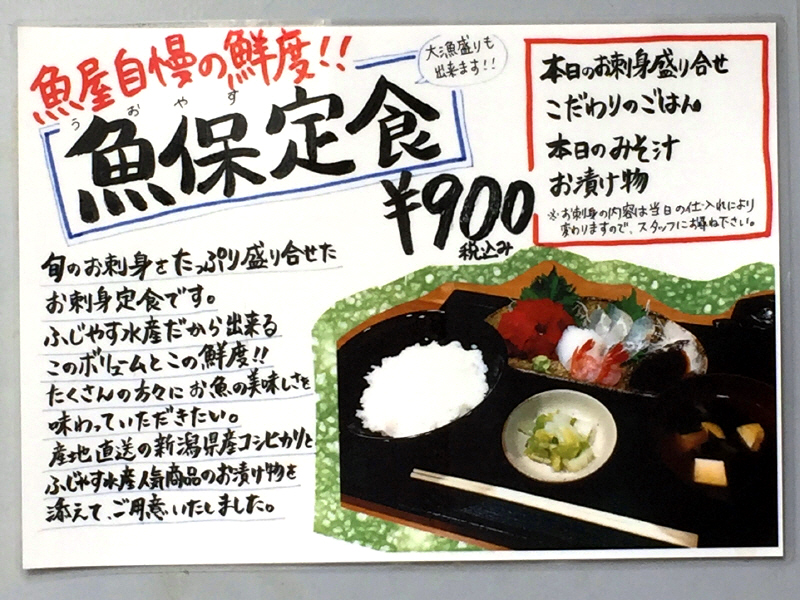 魚屋自慢の鮮度!!
うおやす
魚保定食
大漁盛りも
出来ます!!
¥900
税込み
本日のお刺身盛り合せ
こだわりのごはん
本日のみそ汁
お漬け物
※お刺身の内容は当日の仕入れにより
変わりますので、スタッフにお尋ね下さい。
旬のお刺身をたっぷり盛り合せた
お刺身定食です。
ふじやす水産だから出来る
このボリュームとこの鮮度!!
たくさんの方々にお魚の美味しさを
味わっていただきたい。
産地直送の新潟県産コシヒカリと
ふじやす水産人気商品のお漬け物を
添えて、ご用意いたしました。